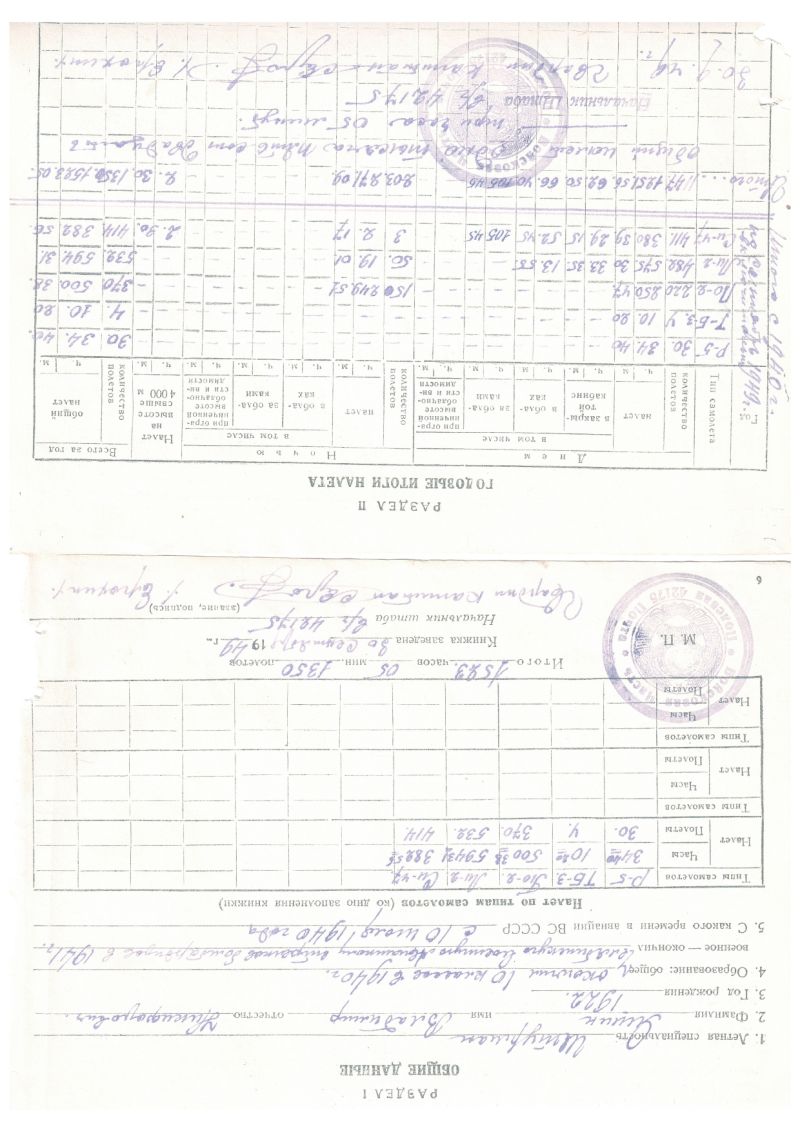 РАЗДЕЛ I
ОБЩИЕ ДАННЫЕ
1. Летная специальность Штурман
2. Фамилия имя Владимир отчество Никифорович.
3. Год рождения 1922.
4. Образование: общее окончил 10 классов в 1940 г.
военное — окончил военную авиационную в 1941 г.
5. С какого времени в авиации ВС СССР с 10 июля 1940 года
Налет по типам самолетов (ко дню заполнения книжки)
Типы самолетов Р-5 ТБ-3 По-2 Ли-2 Си-47
Налет Часы 34 40 10 20 500 38 594 31 382 56
Полеты 30. 4. 370. 532. 414.
Типы самолетов
Налет Часы
Полеты
Типы самолетов
Налет Часы
Полеты
Итого 1523 часов 05 мин. 1350 полетов
Книжка заведена 30 сентября 1949 г.
М. П. Начальник штаба в/ч 42175
Гвардии капитан /Ерохин/.
(звание, подпись)
Войсковая часть • Полевая почта 42175
6
РАЗДЕЛ II
ГОДОВЫЕ ИТОГИ НАЛЕТА
Год Тип самолета Днем Ночью Всего за год
количество полетов налет в том числе количество полетов налет в том числе Налет на высоте свыше 4 000 м количество полетов общий налет
в закрытой кабине в облаках за облаками при ограниченной высоте облачности и видимости в облаках за облаками при ограниченной высоте облачности и видимости
ч. м. ч. м. ч. м. ч. м. ч. м. ч. м. ч. м. ч. м. ч. м. ч. м. ч. м.
Итого с 1940 г.
по сентябрь 1949 г.
Р-5 30. 34 40 – – – – – – – – – – 30 34. 40.
Т-Б-3 4 10. 20 – – – – – – – – – – 4 10. 20
По-2 220 250 47 – – – – 150 249 51 – – – – 370 500 38.
Ли-2 482 575 30 33 35 13. 55 50. 19. 01 – – – – 532 594 31
Си-47 411 380 39 29 15 52 45 105 45 3 2. 17 – – – 2. 30 414 382 56
Итого... 1147 1251 56 62. 50 66. 40 105 45 203 271 09 – – – 2. 30. 1350. 1523 05.
Общий налет одна тысяча пятьсот двадцать
три часа 05 минут.
Начальник Штаба в/ч 42175
Гвардии капитан /Ерохин/.
30. 9. 49 г.